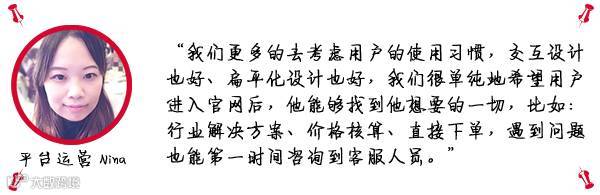 “我们更多的去考虑用户的使用习惯，交互设计
也好、扁平化设计也好，我们很单纯地希望用户
进入官网后，他能够找到他想要的一切，比如：
行业解决方案、价格核算、直接下单，遇到问题
也能第一时间咨询到客服人员。”
平台运营 Nina
大数跨境